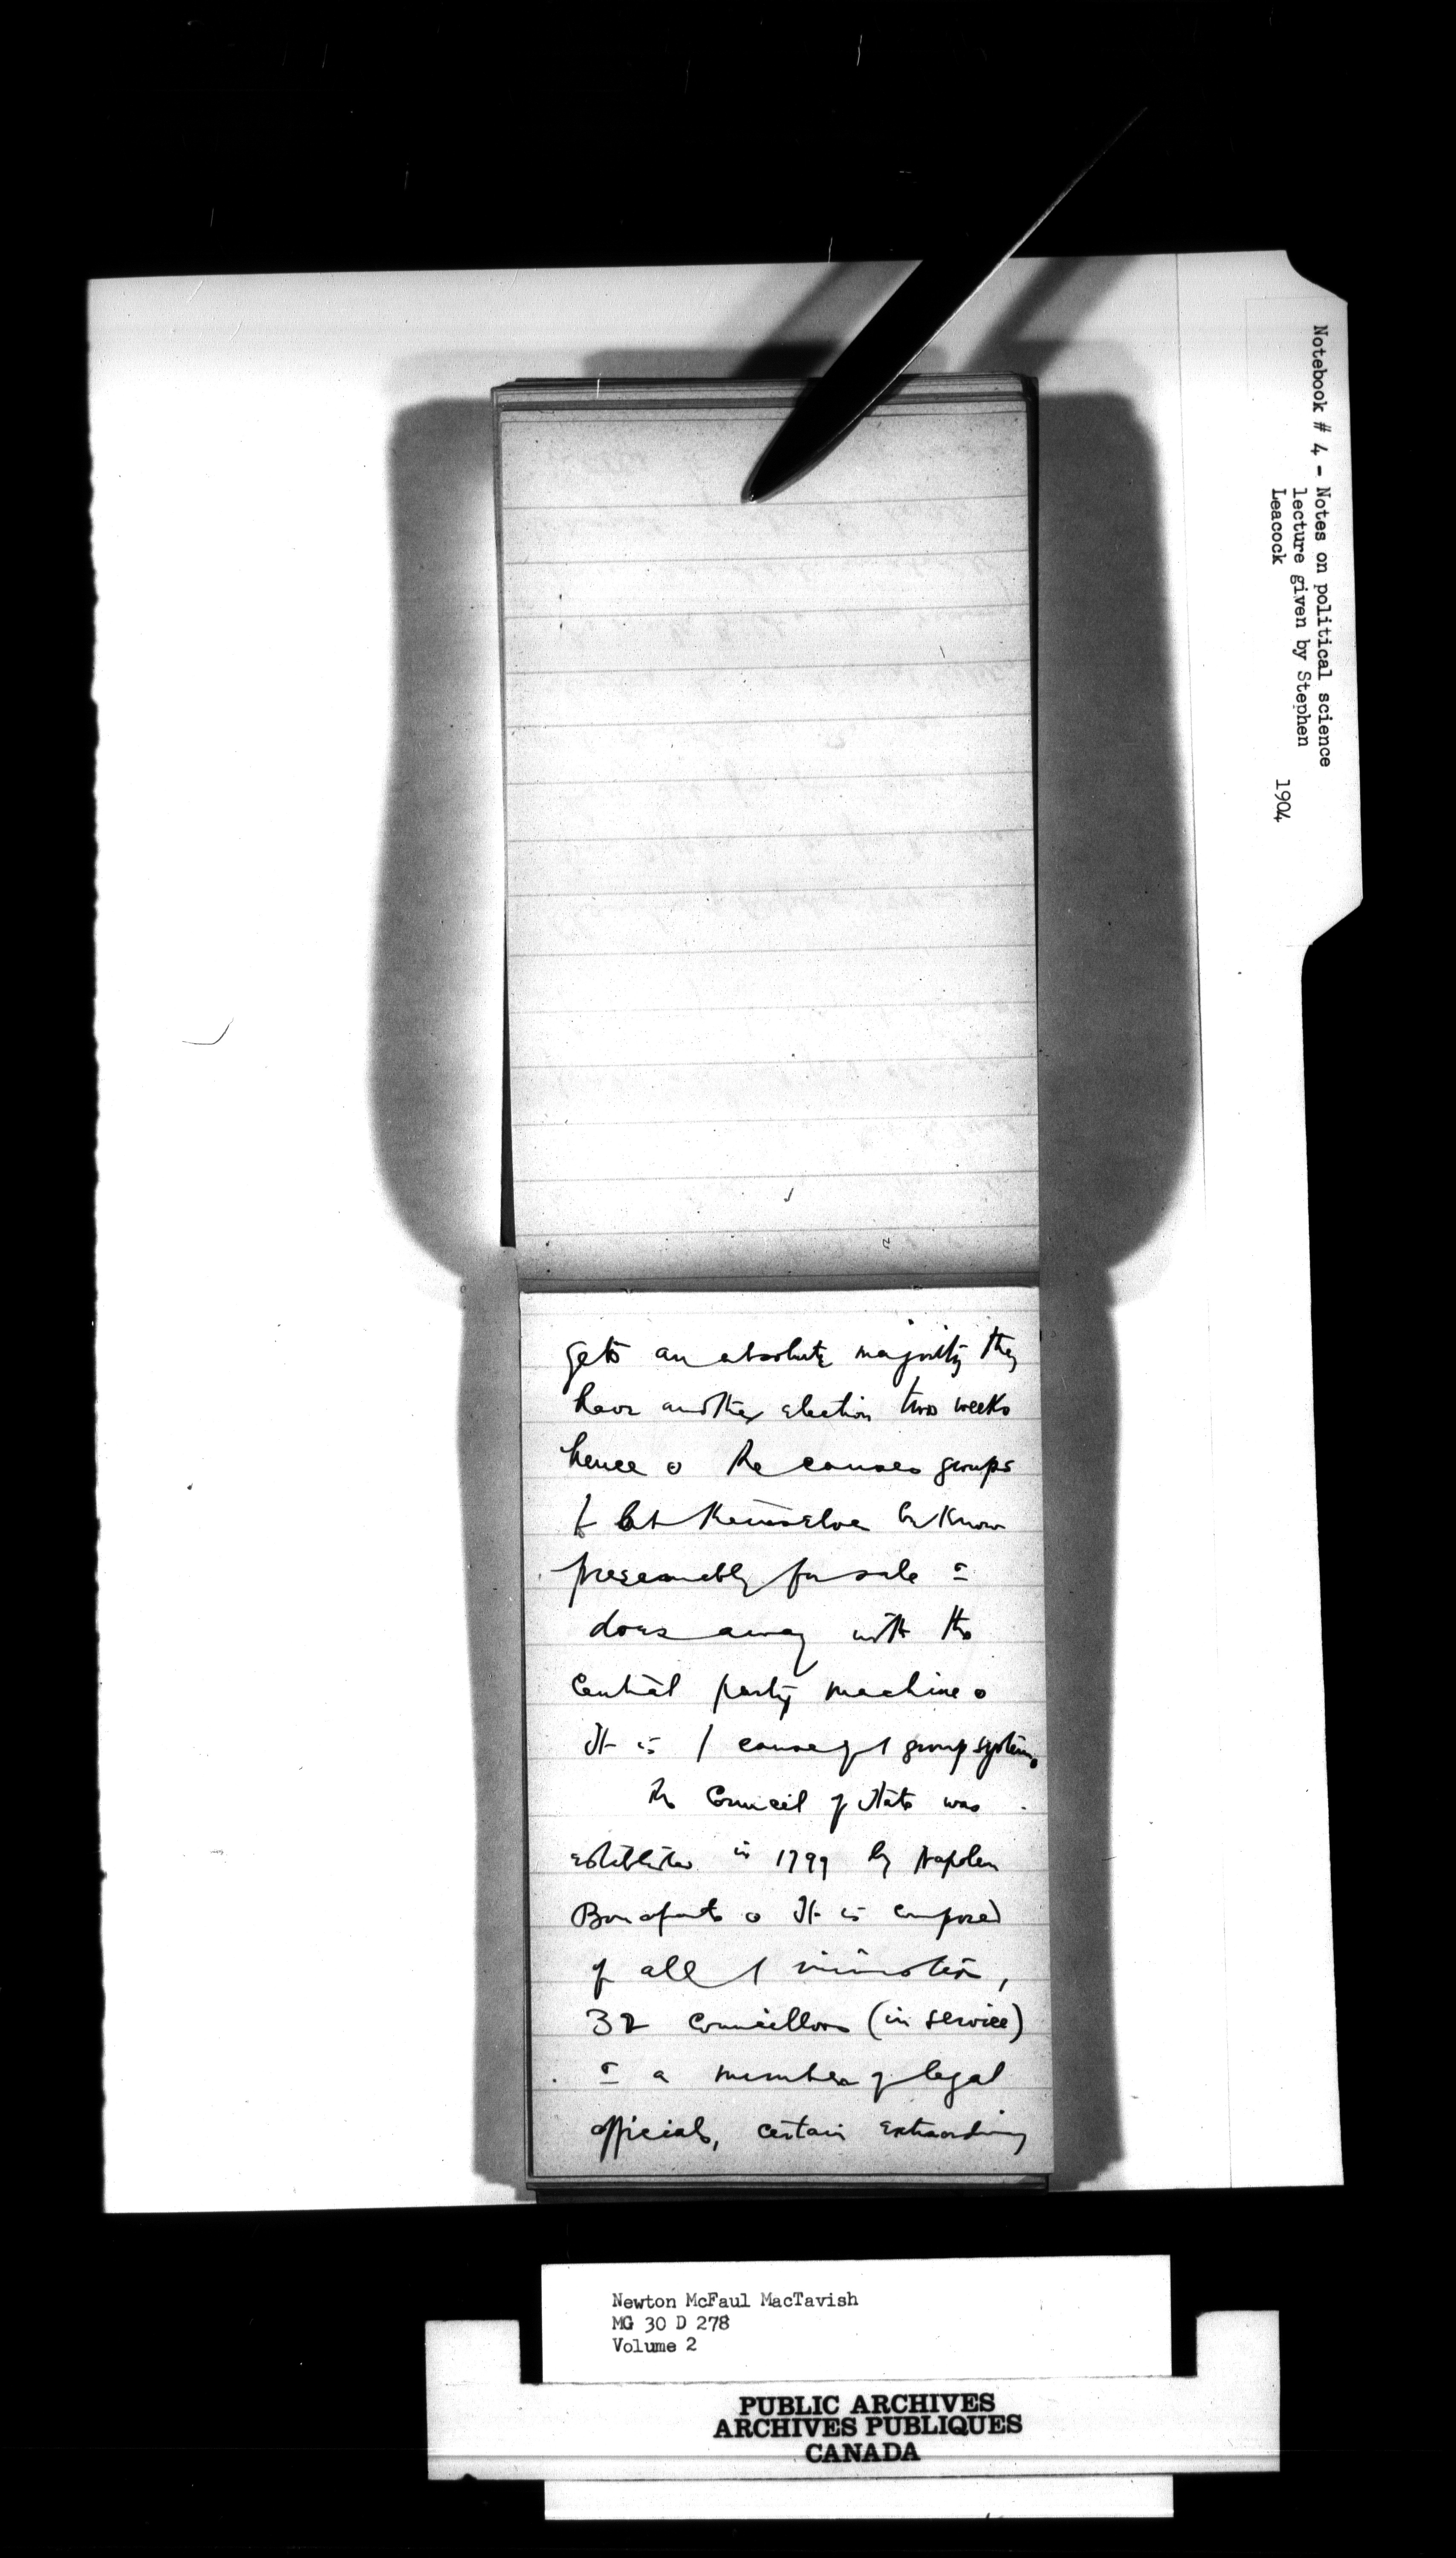 Notebook # 4 - Notes on political science
lecture given by Stephen
Leacock 1904
gets an absolute majority they
have another election two weeks
hence o causes groups
themselves be know
for sale
does away with the
central party machine o
It is / cause of / group system o
The Council of State was
established in 1799 by Napoleon
Bonaparte o It is composed
of all / ministers,
32 Councillors (in service)
a number of legal
officials, certain extraordinary
Newton McFaul MacTavish
MG 30 D 278
Volume 2
PUBLIC ARCHIVES
ARCHIVES PUBLIQUES
CANADA